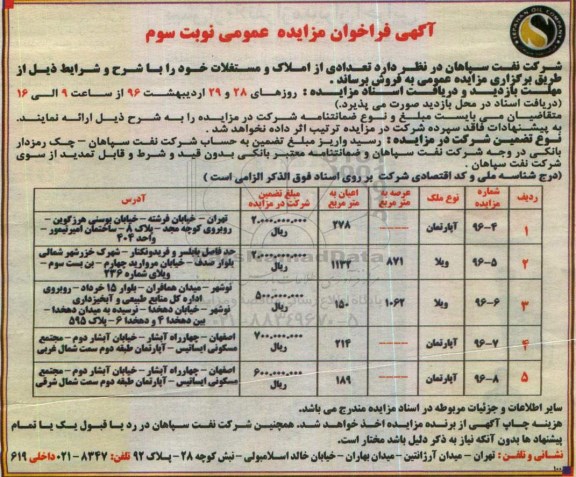 SEPAHAN OIL COMPANY
آگهی فراخوان مزایده عمومی نوبت سوم
شرکت نفت سپاهان در نظر دارد تعدادی از املاک و مستغلات خود را با شرح و شرایط ذیل از
طریق برگزاری مزایده عمومی به فروش برساند .
مهلت بازدید و دریافت اسناد مزایده : روزهای ۲۸ و ۲۹ اردیبهشت ۹۶ از ساعت ۹ الی ۱۶
(دریافت اسناد در محل بازدید صورت می پذیرد.)
متقاضیان می بایست مبلغ و نوع ضمانتنامه شرکت در مزایده را به شرح ذیل ارائه نمایند.
به پیشنهادات فاقد سپرده شرکت در مزایده ترتیب اثر داده نخواهد شد .
نوع تضمین شرکت در مزایده : رسید واریز مبلغ تضمین به حساب شرکت نفت سپاهان – چک رمزدار
بانکی در وجه شرکت نفت سپاهان و ضمانتنامه معتبر بانکی بدون قید و شرط و قابل تمدید از سوی
شرکت نفت سپاهان
(درج شناسه ملی و کد اقتصادی شرکت بر روی اسناد فوق الذکر الزامی است )
ردیف شماره مزایده نوع ملک عرصه به متر مربع اعیان به متر مربع مبلغ تضمین شرکت در مزایده آدرس
۱ ۹۶-۴ آپارتمان ——— ۲۷۸ ۲.۰۰۰.۰۰۰.۰۰۰ ریال تهران – خیابان فرشته – خیابان بوسنی هرزگوین –
روبروی کوچه مجد – پلاک ۸ – ساختمان امیرتیمور –
واحد ۴۰۴
۲ ۹۶-۵ ویلا ۸۷۱ ۱۱۳۲ ۲.۰۰۰.۰۰۰.۰۰۰ ریال حد فاصل بابلسر و فریدونکنار – شهرک خزرشهر شمالی
بلوار صدف – خیابان مروارید چهارم – بن بست سوم –
ویلای شماره ۲۳۶
۳ ۹۶-۶ ویلا ۱۰۶۲ ۱۵۰ ۵۰۰.۰۰۰.۰۰۰ ریال نوشهر – میدان همافران – بلوار ۱۵ خرداد – روبروی
اداره کل منابع طبیعی و آبخیزداری
نوشهر – خیابان دهخدا – نرسیده به میدان دهخدا –
بین دهخدا ۴ و دهخدا ۶ – پلاک ۵۹۵
۴ ۹۶-۷ آپارتمان ——— ۲۱۴ ۷۰۰.۰۰۰.۰۰۰ ریال اصفهان – چهارراه آبشار – خیابان آبشار دوم – مجتمع
مسکونی ایساتیس – آپارتمان طبقه دوم سمت شمال غربی
۵ ۹۶-۸ آپارتمان ——— ۱۸۹ ۶۰۰.۰۰۰.۰۰۰ ریال اصفهان – چهارراه آبشار – خیابان آبشار دوم – مجتمع
مسکونی ایساتیس – آپارتمان طبقه دوم سمت شمال شرقی
سایر اطلاعات و جزئیات مربوطه در اسناد مزایده مندرج می باشد.
هزینه چاپ آگهی از برنده مزایده اخذ خواهد شد. همچنین شرکت نفت سپاهان در رد یا قبول یک یا تمام
پیشنهاد ها بدون آنکه نیاز به ذکر دلیل باشد مختار است.
نشانی و تلفن : تهران – میدان آرژانتین – میدان بهاران – خیابان خالد اسلامبولی – نبش کوچه ۲۸ – پلاک ۹۲ تلفن: ۸۳۴۷-۰۲۱ داخلی ۶۱۹